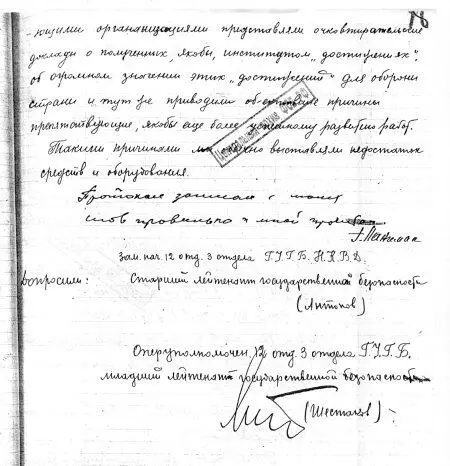 78
-ющими организациями представляли очковтирательские
доклады о полученных, якобы, институтом "достижениях",
об огромном значении этих "достижений" для обороны
страны и тут же приводили причины
препятствующие, якобы еще более успешному развитию работ.
Такими причинами выставляли недостаток
средств и оборудования.
Протокол записан с моих
слов правильно и мной
Зам. нач. 12 отд. 3 отдела Г.У.Г.Б. Н.К.В.Д.
Допросили: Старший лейтенант государственной безопасности
(Антонов)
Оперуполномочен. 12 отд. 3 отдела Г.У.Г.Б.
младший лейтенант государственной безопасности
(Шестаков)